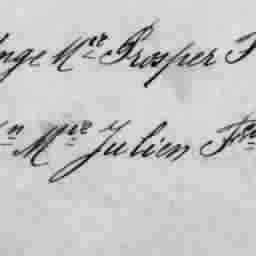 Ange Mre Prosper F
n Mre Julien Fs